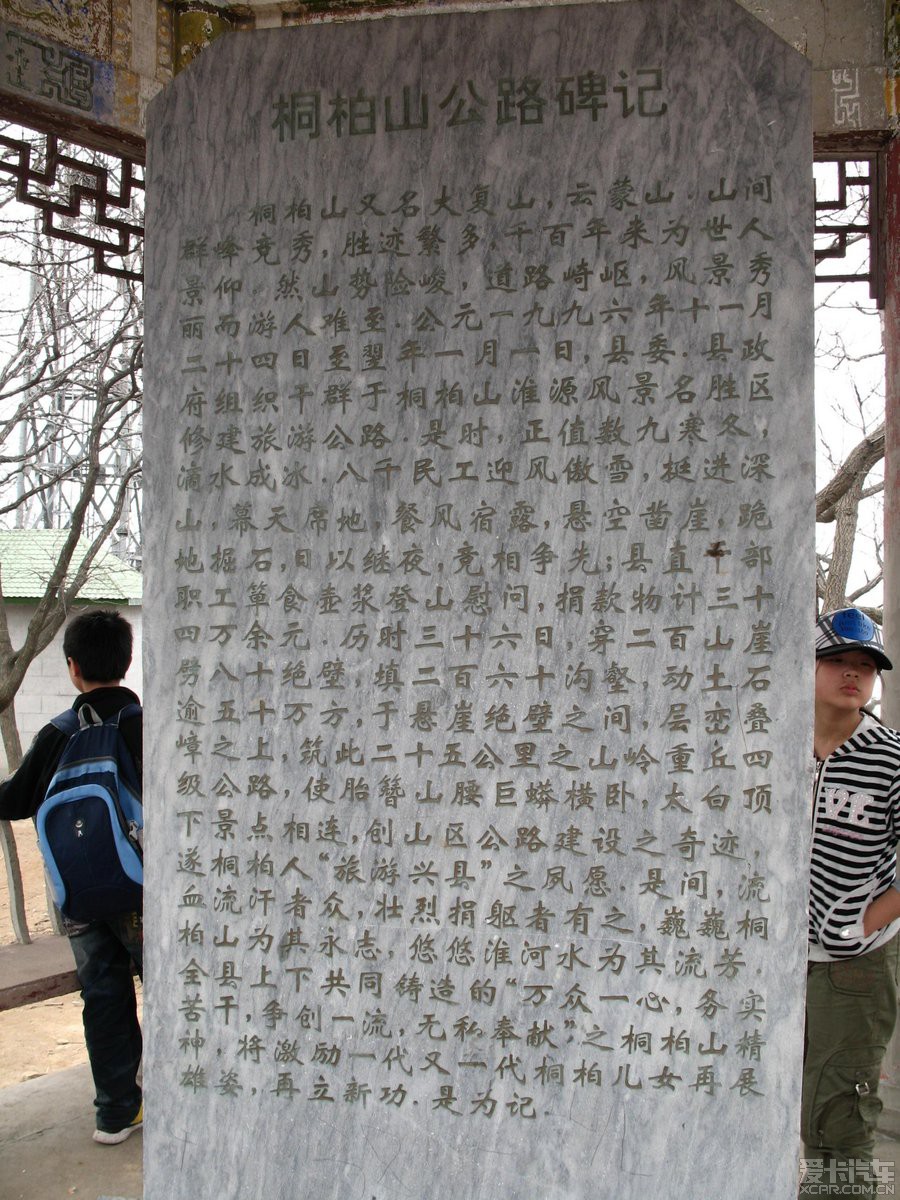 桐柏山公路碑记
桐柏山又名大复山，云蒙山．山间
群峰竞秀，胜迹繁多，千百年来为世人
景仰．然山势险峻，道路崎岖，风景秀
丽而游人难至．公元一九九六年十一月
二十四日至翌年一月一日，县委．县政
府组织干群于桐柏山淮源风景名胜区
修建旅游公路．是时，正值数九寒冬，
滴水成冰．八千民工迎风傲雪，挺进深
山，幕天席地，餐风宿露，悬空凿崖，跪
地掘石，日以继夜，竞相争先；县直干部
职工箪食壶浆登山慰问，捐款物计三十
四万余元．历时三十六日，穿二百山崖
劈八十绝壁，填二百六十沟壑，动土石
逾五十万方，于悬崖绝壁之间，层峦叠
嶂之上，筑此二十五公里之山岭重丘四
级公路，使胎簪山腰巨蟒横卧，太白顶
下景点相连，创山区公路建设之奇迹，
遂桐柏人“旅游兴县”之夙愿．是间，流
血流汗者众，壮烈捐躯者有之，巍巍桐
柏山为其永志，悠悠淮河水为其流芳．
全县上下共同铸造的“万众一心，务实
苦干，争创一流，无私奉献”之桐柏山精
神，将激励一代又一代桐柏儿女再展
雄姿，再立新功．是为记．
爱卡汽车
XCAR.COM.CN